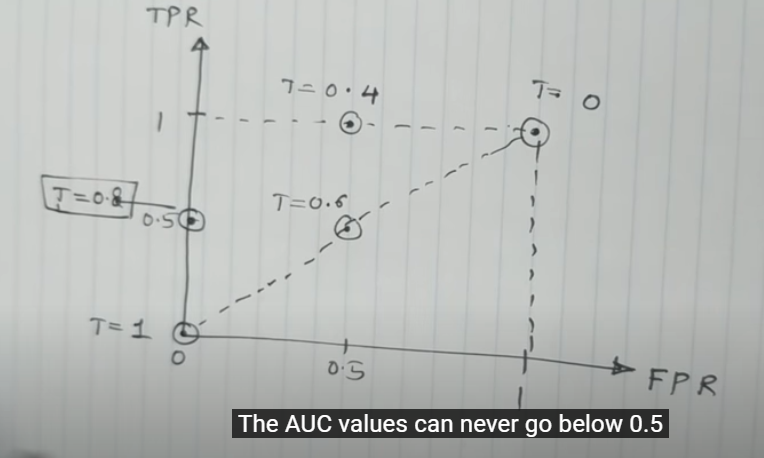 TPR
T= 0.4
T= 0
1
T=0.8
T=0.6
0.5
T= 1
0
0.5
1
FPR
The AUC values can never go below 0.5